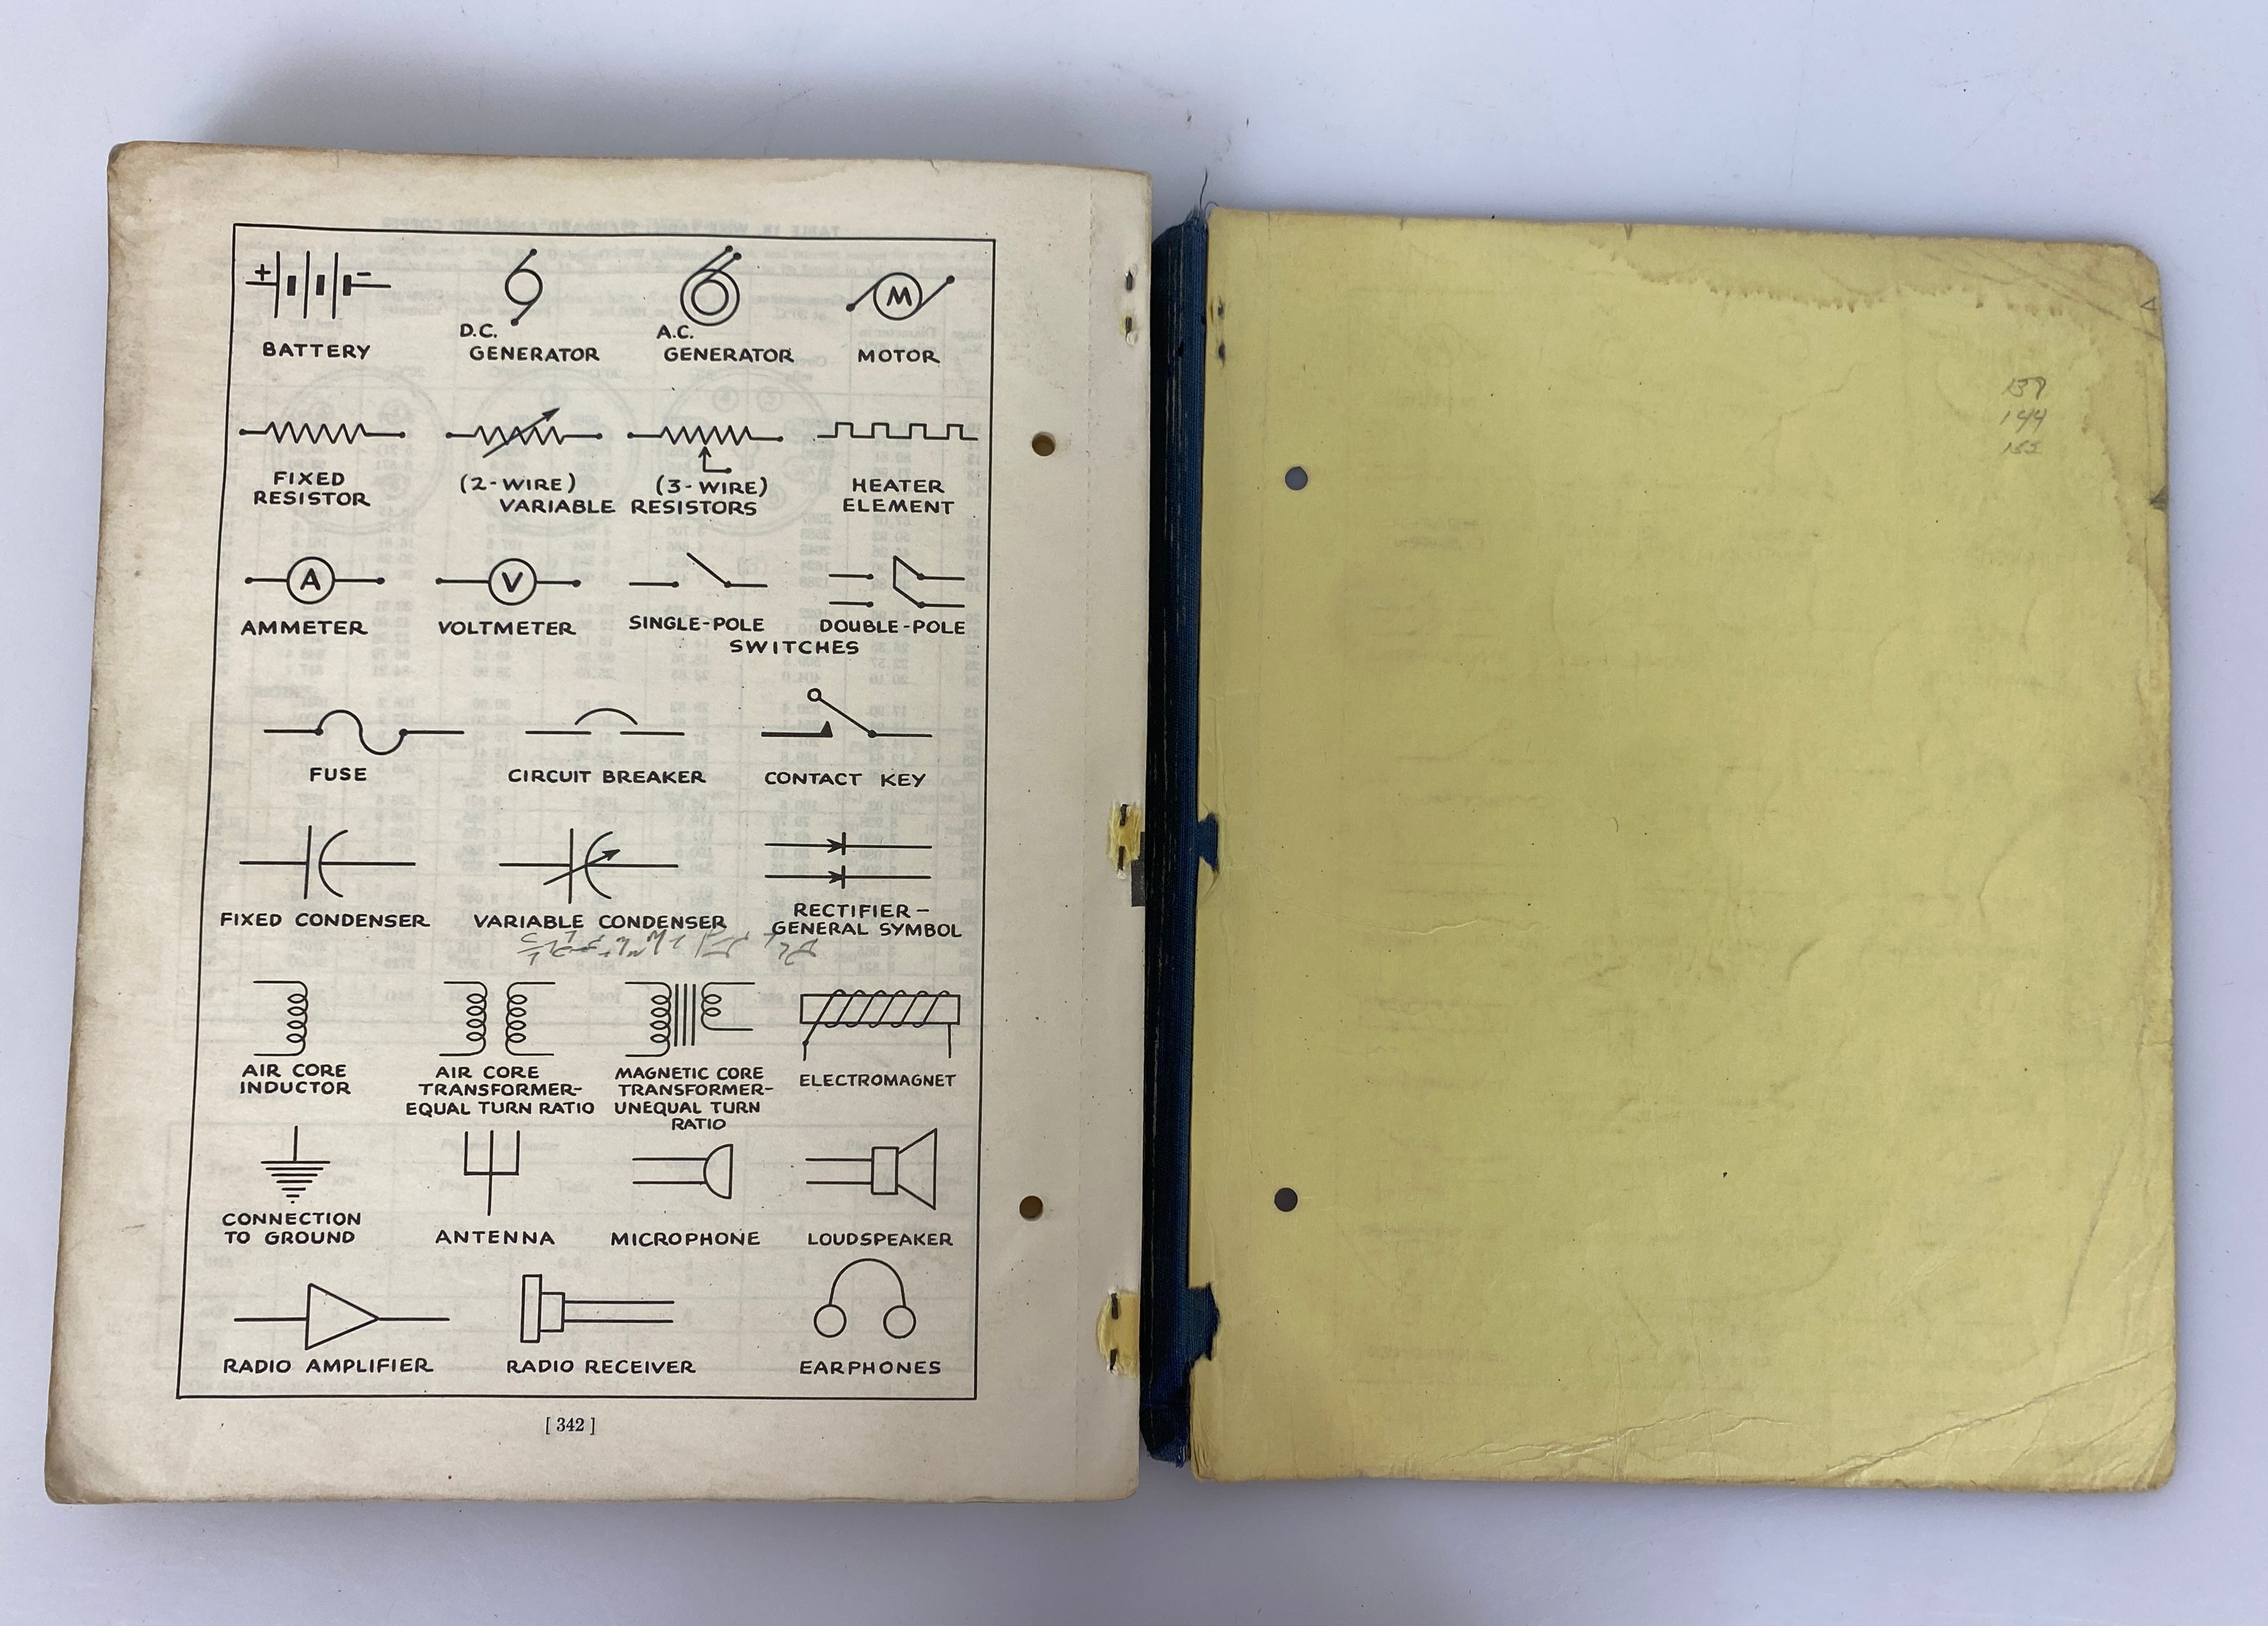 + -
BATTERY
D.C. GENERATOR
A.C. GENERATOR
M
MOTOR
FIXED
RESISTOR
(2-WIRE) (3-WIRE)
VARIABLE RESISTORS
HEATER
ELEMENT
A
AMMETER
V
VOLTMETER
SINGLE-POLE DOUBLE-POLE
SWITCHES
FUSE
CIRCUIT BREAKER
CONTACT KEY
FIXED CONDENSER
VARIABLE CONDENSER
RECTIFIER-
GENERAL SYMBOL
AIR CORE
INDUCTOR
AIR CORE
TRANSFORMER-
EQUAL TURN RATIO
MAGNETIC CORE
TRANSFORMER-
UNEQUAL TURN
RATIO
ELECTROMAGNET
CONNECTION
TO GROUND
ANTENNA
MICROPHONE
LOUDSPEAKER
RADIO AMPLIFIER
RADIO RECEIVER
EARPHONES
[ 342 ]
144